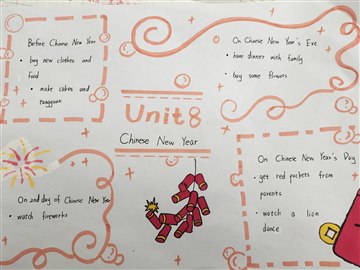 Before Chinese New Year
• buy new clothes and
food
• make cakes and
tangyuan
On Chinese New Year's Eve
• have dinner with family
• buy some flowers
Unit 8
Chinese New Year
On 2nd day of Chinese New Year
• watch fireworks
On Chinese New Year's Day
• get red packets from
parents
• watch a lion
dance